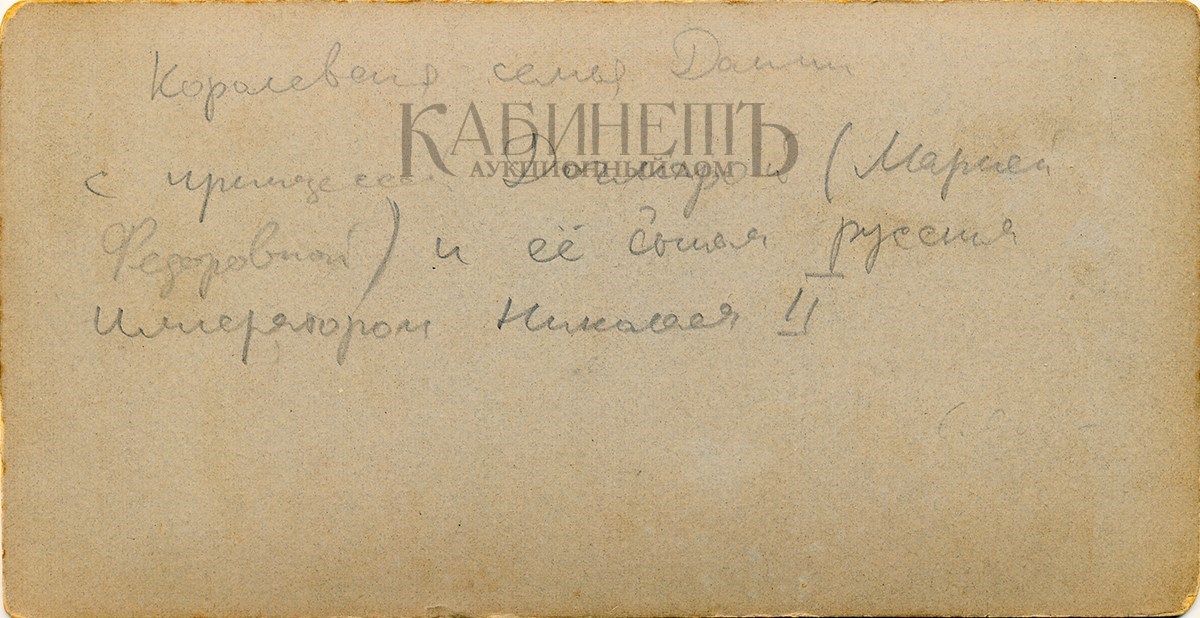 Королевская семья Дании
КАБИНЕТЪ
АУКЦИОННЫЙ ДОМ
с принцессой Дагмарой (Марией
Федоровной) и её сыном русским
Императором Николаем II